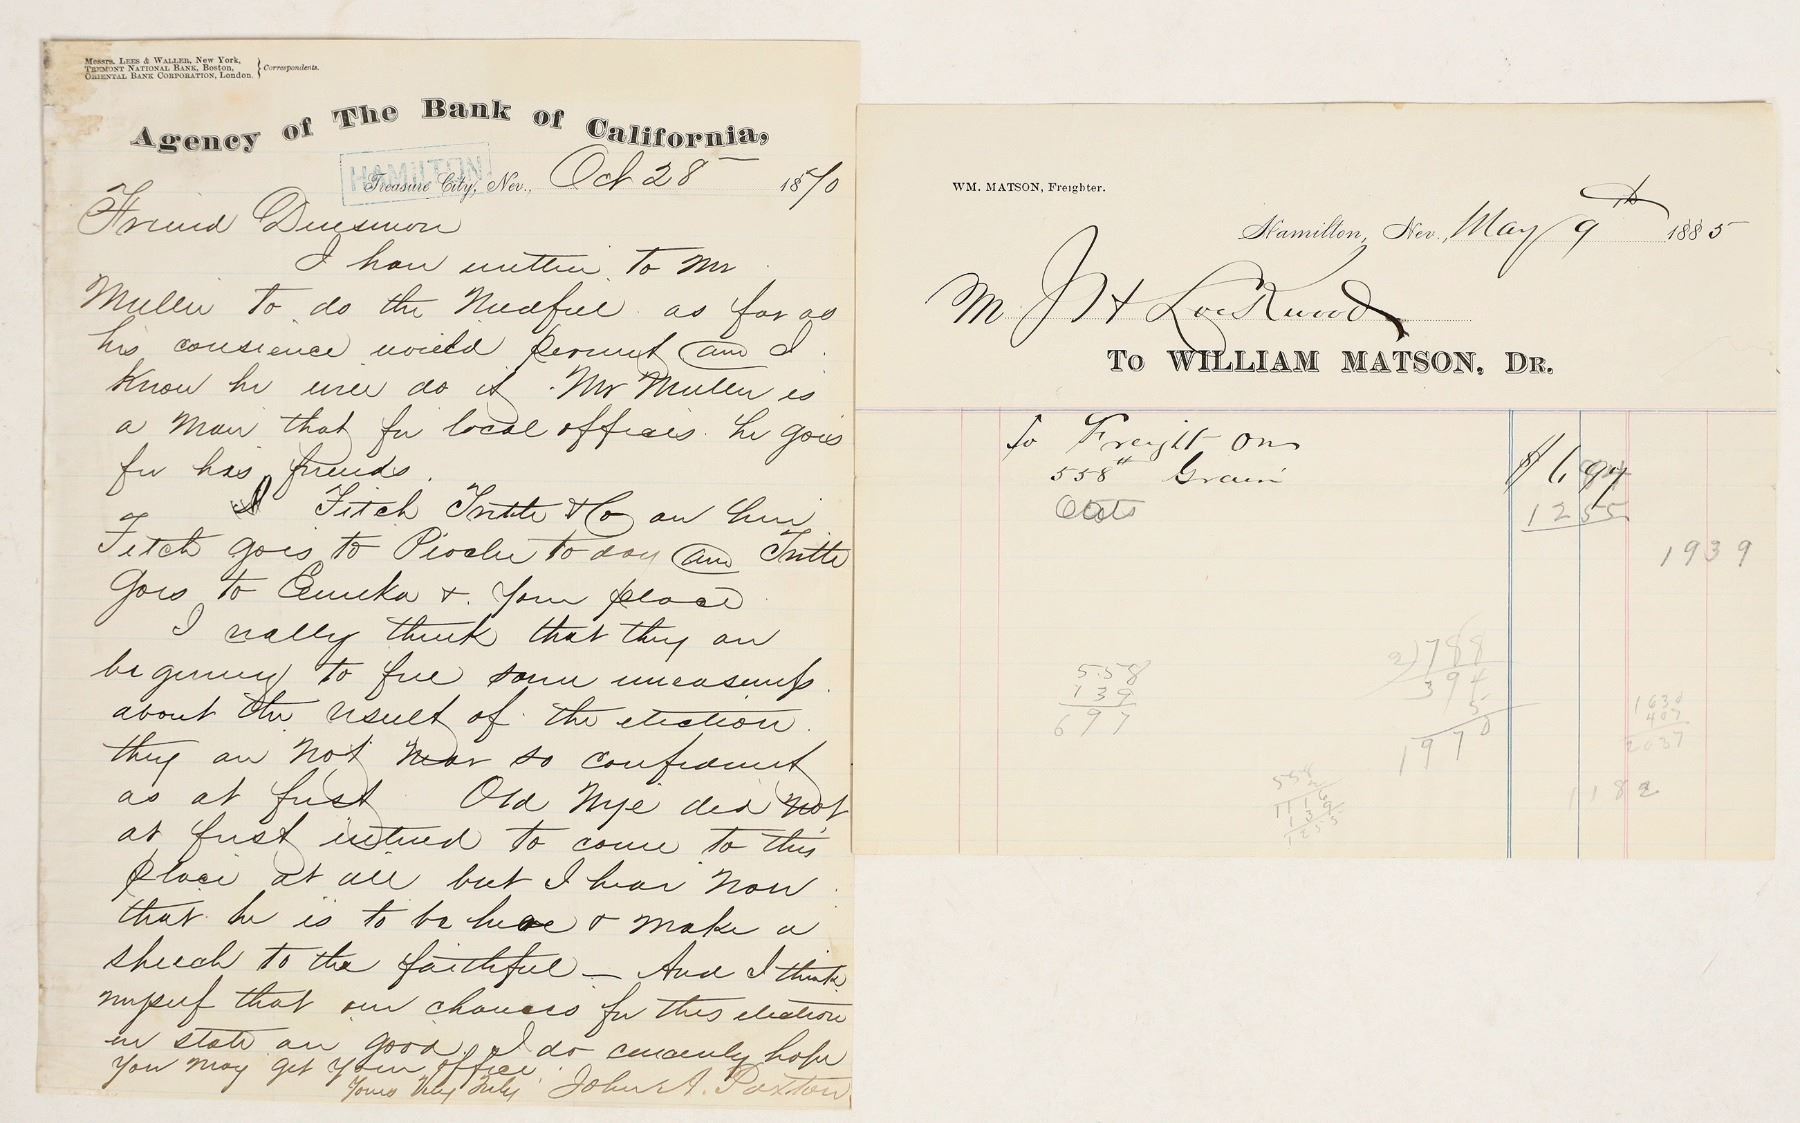 Messrs. LEES & WALLER, New York,
TREMONT NATIONAL BANK, Boston,
ORIENTAL BANK CORPORATION, London.
Correspondents.
Agency of The Bank of California,
HAMILTON
Treasure City, Nev., Oct 28 1870
Friend
I have written to Mr
Mullin to do the Needful as far as
his consience would permit and I
Know he will do it. Mr Mullen is
a Man that for local offices he goes
for his friends.
Fitch Tritle & Co are here
Fitch goes to Pioche to day and Tritle
Goes to Eureka & Your place
I really think that they are
begining to feel some uneasiness
about the result of the election
they are not near so confident
as at first Old Nye did not
at first intend to come to this
place at all but I hear Now
that he is to be here & make a
speech to the faithful — And I think
myself that our chances for this election
in state are good, I do cincerely hope
You May get Your office
Yours Very Truly John A. Paxton
WM. MATSON, Freighter.
Hamilton, Nev., May 9th 1885
M J H Lockwood
TO WILLIAM MATSON, DR.
To Freight on
558# Grain $6,97
Oats
1255
1939
558
139
697
2)788
394
5
1970
1630
407
2037
558
2
1116
139
1255
1182